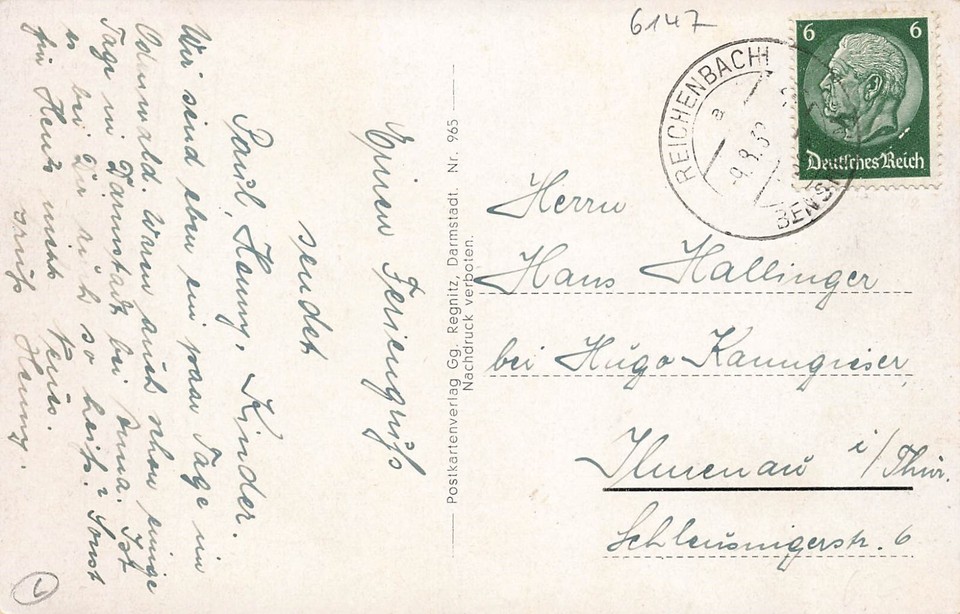 6147
6 6
Deutsches Reich
REICHENBACH
BENSH
a
-9.8.3
Einen Feriengruß
sendet
Paul, Henny, Kinder.
Wir sind eben ein paar Tage im
Odenwald. Waren auch schon einige
Tage in Darmstadt bei Oma. Ist
es bei Dir auch so heiß? Sonst
für Heute nichts Neues.
Gruß Henny.
Postkartenverlag Gg. Regnitz, Darmstadt. Nr. 965
Nachdruck verboten.
Herrn
Hans Hallinger
bei Hugo Kanngieser
Ilmenau i/Thür.
Schleusingerstr. 6